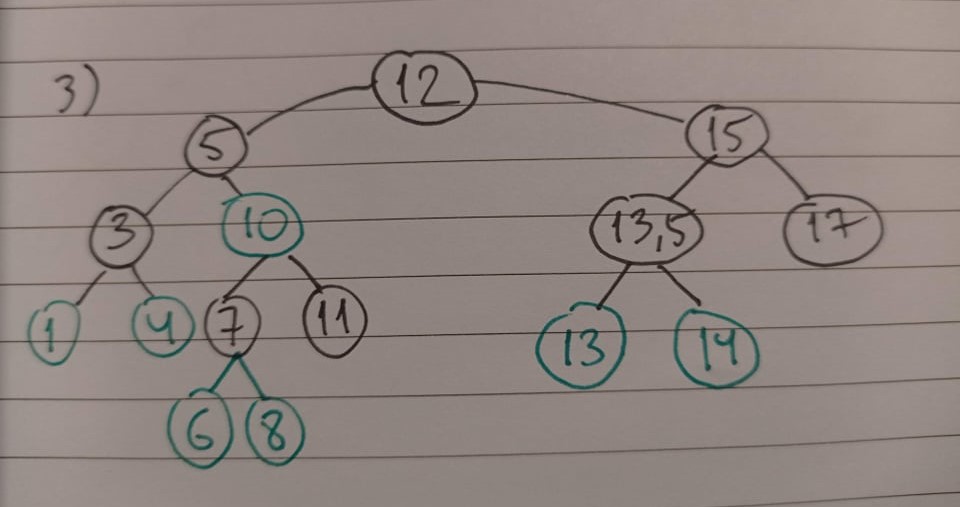 3)
12
5 15
3 10 13,5 17
1 4 7 11 13 14
6 8